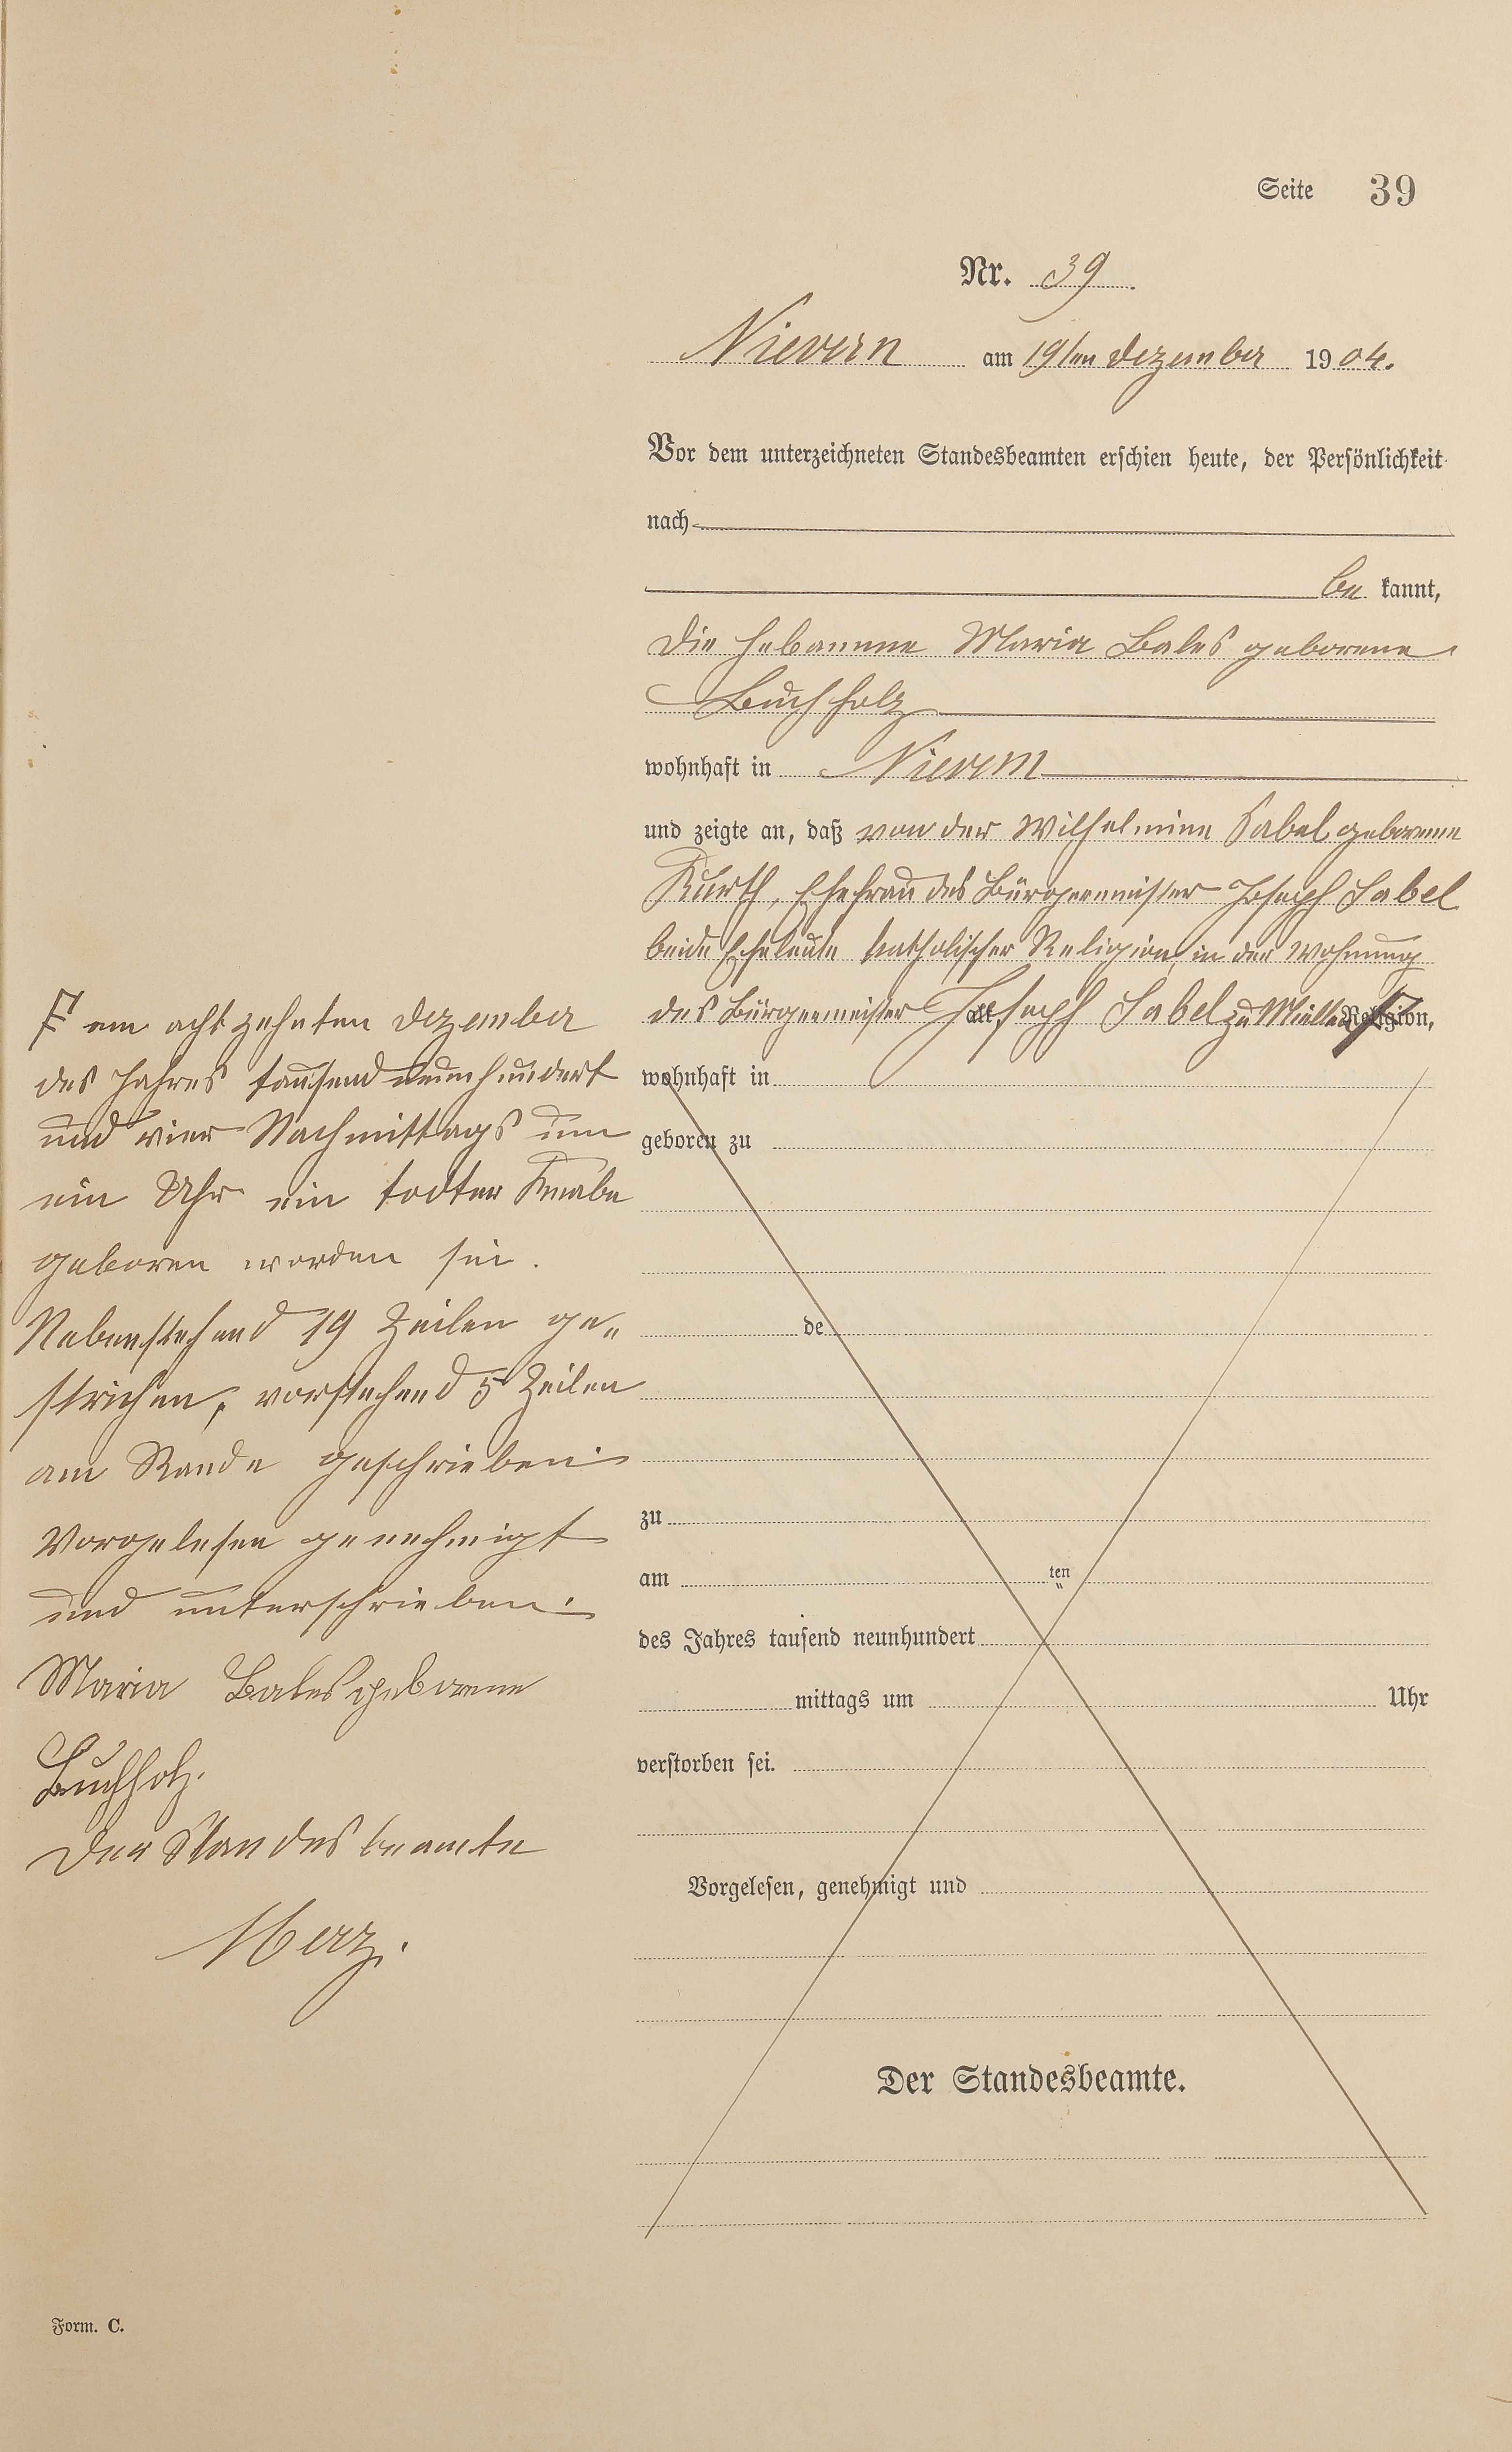 Seite 39
Nr. 39.
Nievern am 19ten Dezember 1904.
Vor dem unterzeichneten Standesbeamten erschien heute, der Persönlichkeit
nach
be kannt,
die Hebamme Maria Bales geborene
Buchholz
wohnhaft in Nievern
und zeigte an, daß von der Wilhelmine Sabel geborenen
Kurth, Ehefrau des Bürgermeister Joseph Sabel
beide Eheleute katholischer Religion, in der Wohnung
des Bürgermeister Joseph Sabel zu Miellen
alt, Religion,
wohnhaft in
geboren zu
de
zu
am ten
des Jahres tausend neunhundert
mittags um Uhr
verstorben sei.
Vorgelesen, genehmigt und
Der Standesbeamte.
am achtzehnten Dezember
des Jahres tausend neunhundert
und vier Nachmittags um
ein Uhr ein todter Knabe
geboren worden sei.
Nebenstehend 19 Zeilen ge„
strichen, vorstehend 5 Zeilen
am Rande geschrieben.
Vorgelesen genehmigt
und unterschrieben.
Maria Bales geborene
Buchholz.
Der Standesbeamte
Merz.
Form. C.